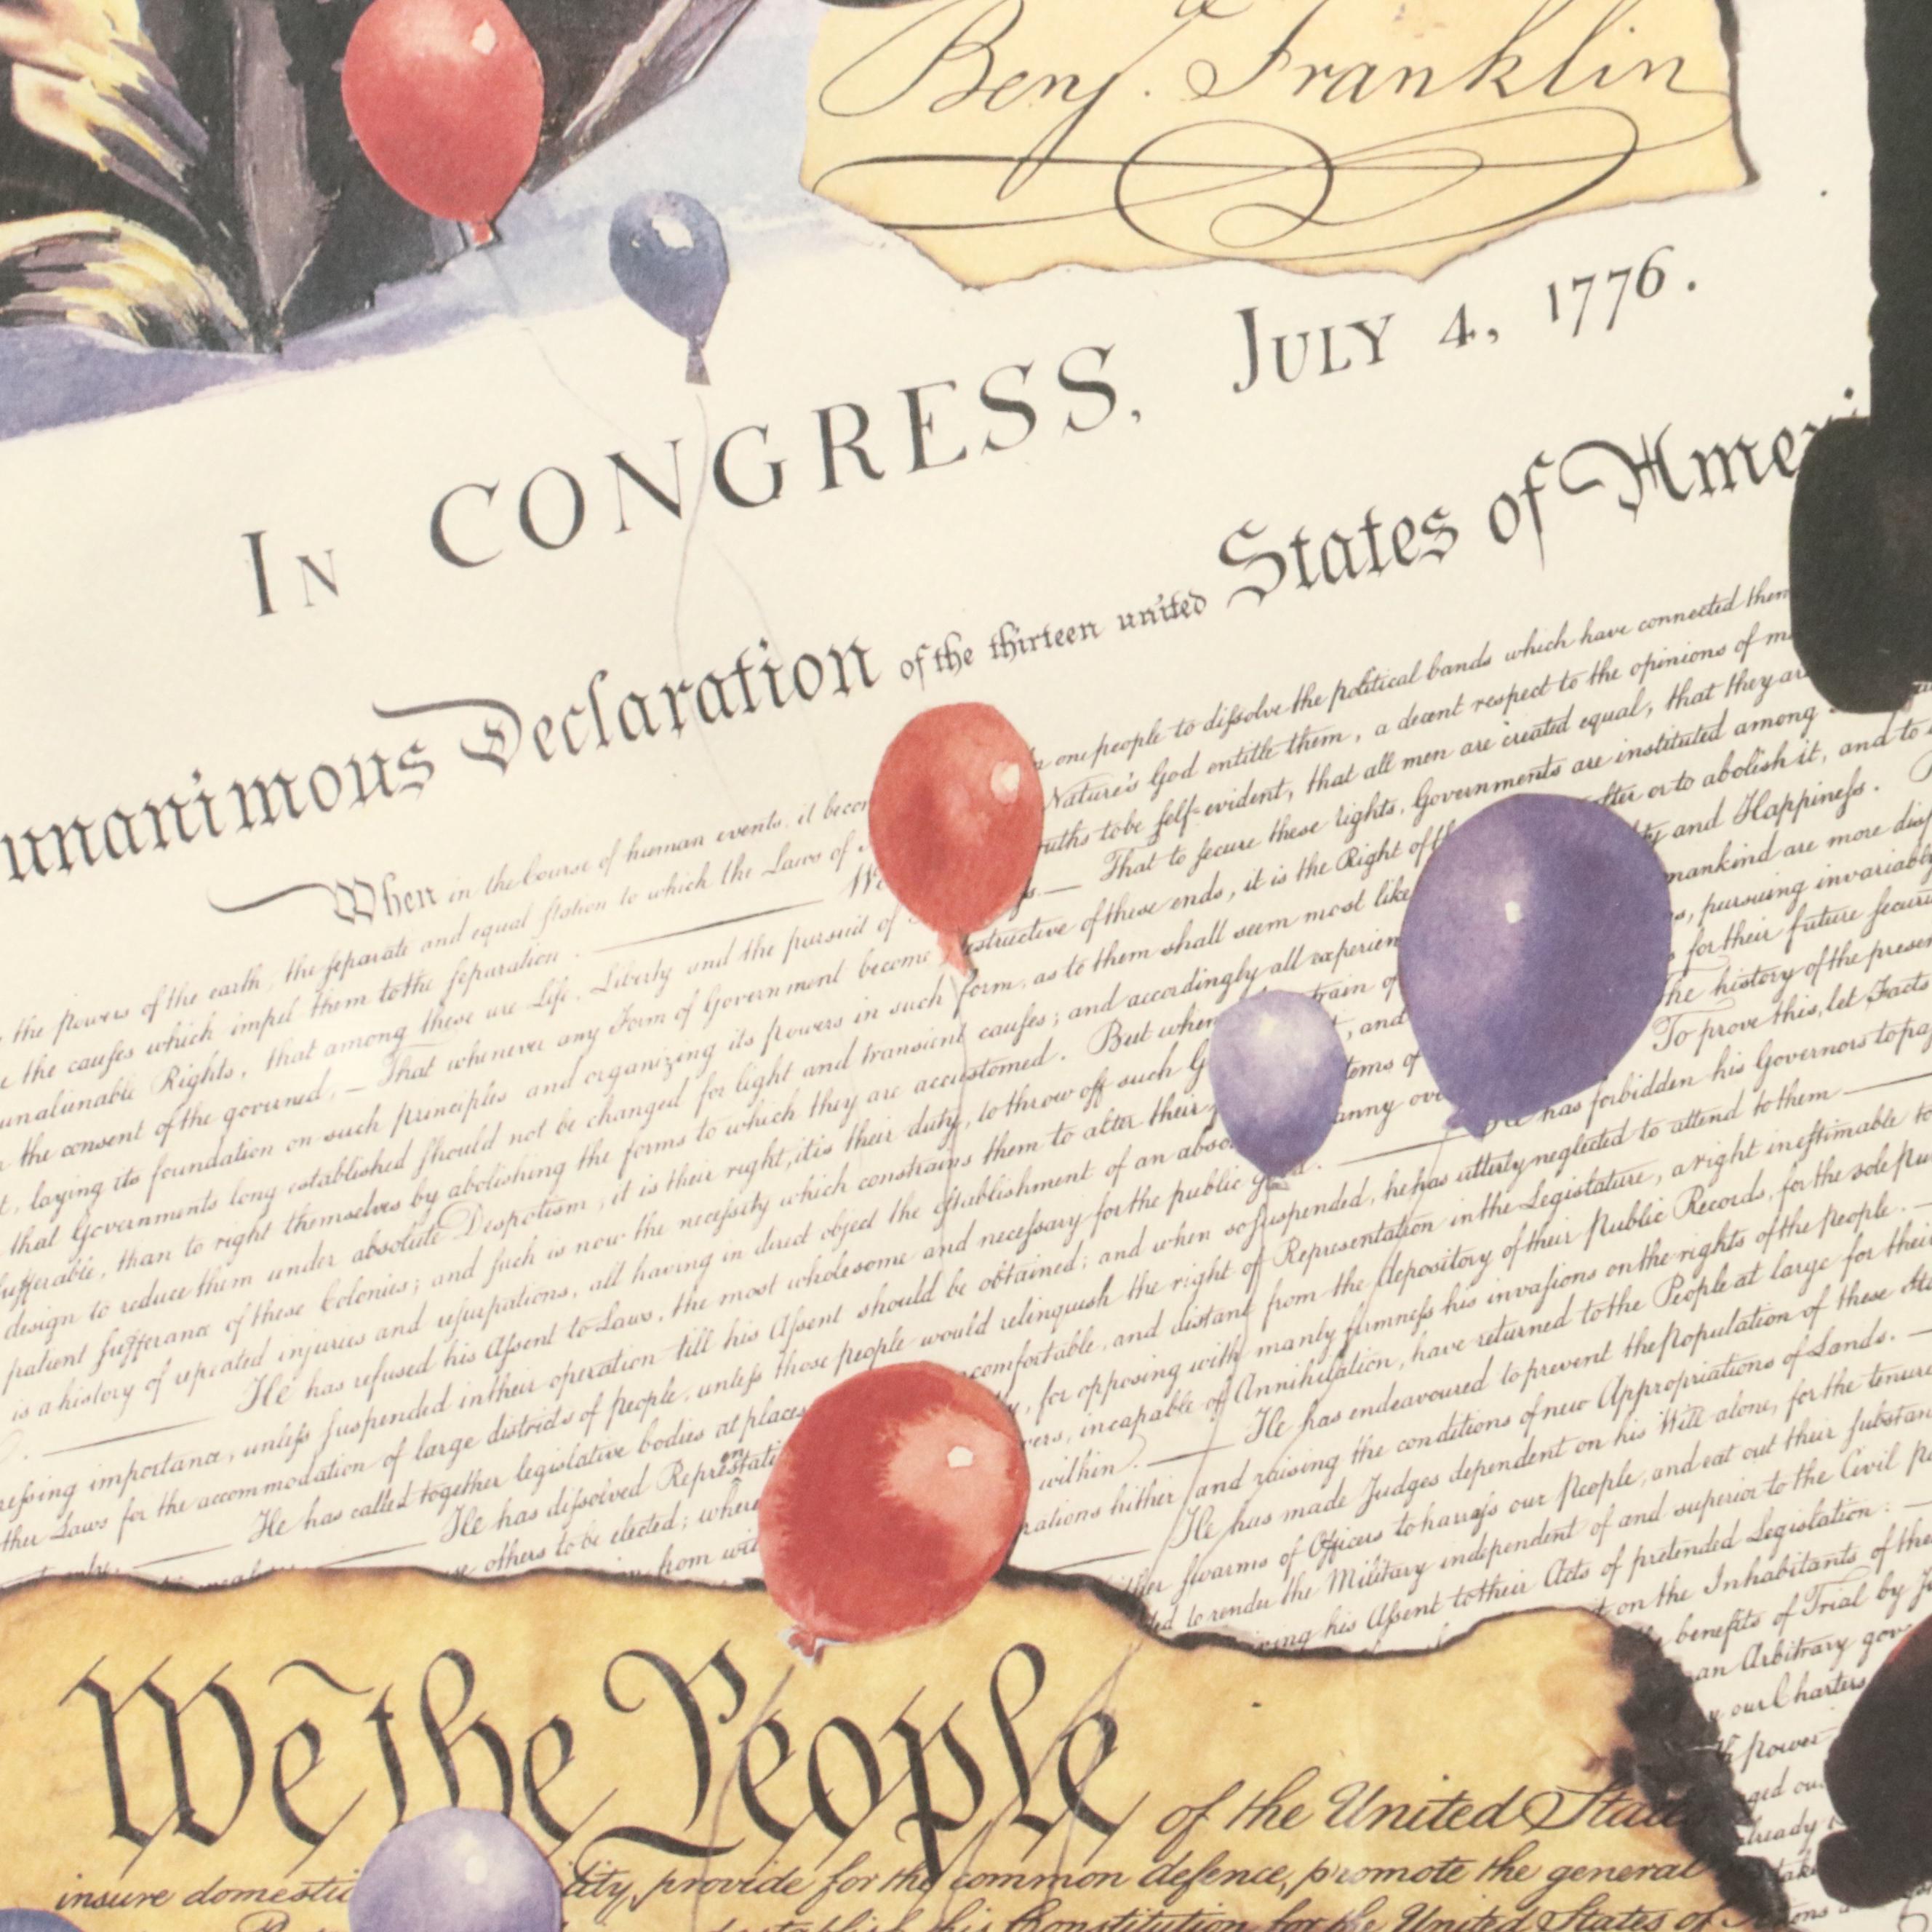 Benj. Franklin
In CONGRESS, July 4, 1776.
unanimous Declaration of the thirteen united States of Amer
When in the Course of human events, it becom one people to dissolve the political bands which have connected them
the powers of the earth, the separate and equal station to which the Laws of Nature's God entitle them, a decent respect to the opinions of m
the causes which impel them to the separation. We ruths to be self-evident, that all men are created equal, that they ar
unalienable Rights, that among these are Life, Liberty and the pursuit of s.— That to secure these rights, Governments are instituted among
the consent of the governed,— That whenever any Form of Government becomes destructive of these ends, it is the Right of th alter or to abolish it, and to
laying its foundation on such principles and organizing its powers in such form, as to them shall seem most like ty and Happiness.
that Governments long established should not be changed for light and transient causes; and accordingly all experien mankind are more disp
sufferable, than to right themselves by abolishing the forms to which they are accustomed. But when train of s, pursuing invariably
design to reduce them under absolute Despotism, it is their right, it is their duty, to throw off such G , and for their future secur
patient sufferance of these Colonies; and such is now the necessity which constrains them to alter their tems of The history of the presen
is a history of repeated injuries and usurpations, all having in direct object the establishment of an abso anny ove To prove this, let Facts
He has refused his Assent to Laws, the most wholesome and necessary for the public good. He has forbidden his Governors to pa
ressing importance, unless suspended in their operation till his Assent should be obtained; and when so suspended, he has utterly neglected to attend to them
ther Laws for the accommodation of large districts of people, unless those people would relinquish the right of Representation in the Legislature, a right inestimable to
He has called together legislative bodies at places comfortable, and distant from the depository of their Public Records, for the sole pu
He has dissolved Representati , for opposing with manly firmness his invasions on the rights of the people.
others to be elected; where vers, incapable of Annihilation, have returned to the People at large for their
from wit within. He has endeavoured to prevent the population of these Sta
rations hither, and raising the conditions of new Appropriations of Lands.
He has made Judges dependent on his Will alone, for the tenure
ither swarms of Officers to harrass our People, and eat out their substan
ed to render the Military independent of and superior to the Civil Po
ving his Assent to their Acts of pretended Legislation:
on the Inhabitants of the
benefits of Trial by J
an Arbitrary gov
our Charters
power
ged ou
lready
We the People of the United States
insure domestic ility, provide for the common defence, promote the general
establish this Constitution for the United States of